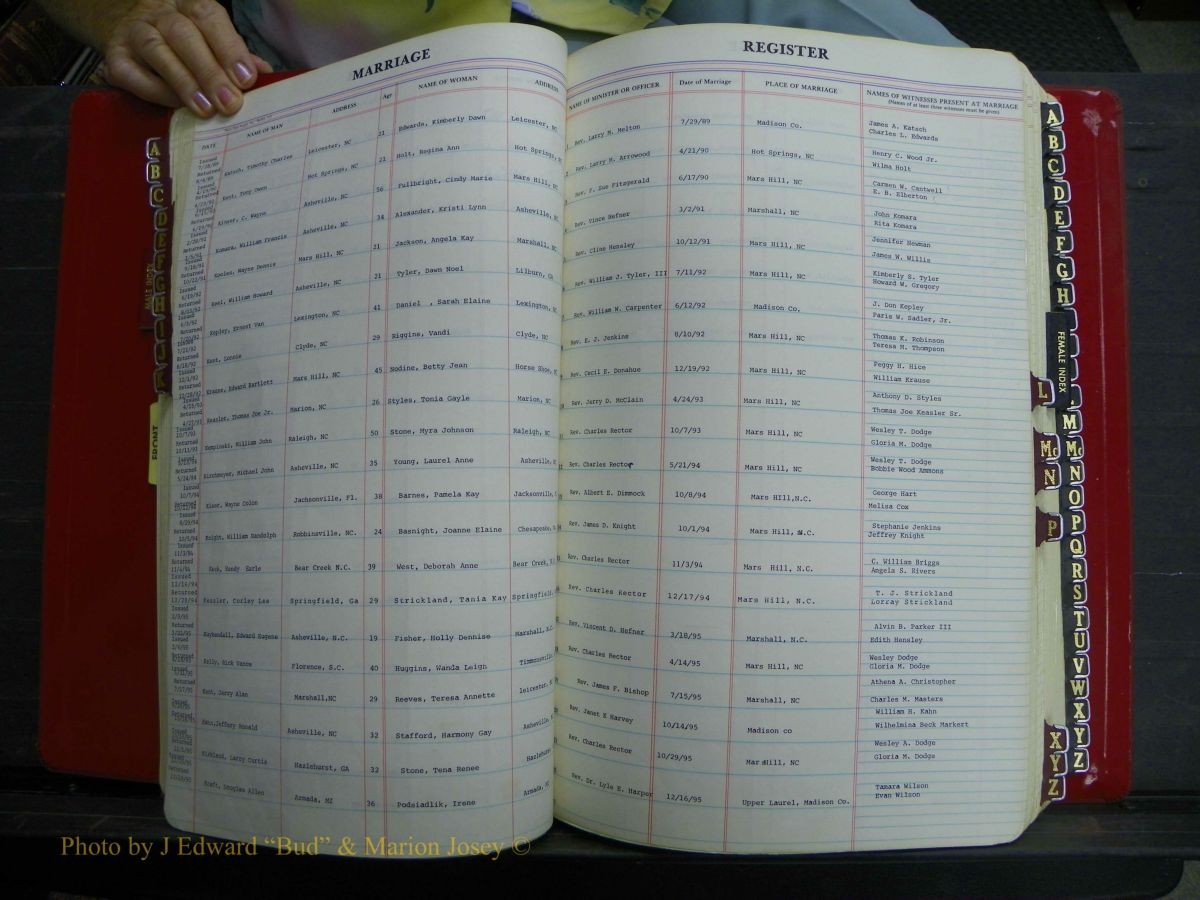 MARRIAGE
REGISTER
DATE NAME OF MAN ADDRESS Age NAME OF WOMAN ADDRESS NAME OF MINISTER OR OFFICER Date of Marriage PLACE OF MARRIAGE NAMES OF WITNESSES PRESENT AT MARRIAGE
(Names of at least three witnesses must be given)
Katsch, Timothy Charles Leicester, NC 21 Edwards, Kimberly Dawn Leicester, Rev. Larry M. Melton 7/29/89 Madison Co. James A. Katsch
Charles L. Edwards
Kent, Tony Owen Hot Springs, NC 21 Holt, Regina Ann Hot Springs, Rev. Larry M. Arrowood 4/21/90 Hot Springs, NC Henry C. Wood Jr.
Wilma Holt
Kinser, C. Wayne Asheville, NC 56 Fullbright, Cindy Marie Mars Hill, Rev. F. Sue Fitzgerald 6/17/90 Mars Hill, NC Carmen W. Cantwell
E. B. Elberton
Komara, William Francis Asheville, NC 34 Alexander, Kristi Lynn Asheville, Rev. Vince Hefner 3/2/91 Marshall, NC John Komara
Rita Komara
Wayne Dennis Mars Hill, NC 21 Jackson, Angela Kay Marshall, Rev. Cline Hensley 10/12/91 Mars Hill, NC Jennifer Newman
James W. Willis
William Howard Asheville, NC 21 Tyler, Dawn Noel Lilburn, Rev. William J. Tyler, III 7/11/92 Mars Hill, NC Kimberly S. Tyler
Howard W. Gregory
Kepley, Ernest Van Lexington, NC 41 Daniel , Sarah Elaine Lexington, Rev. William W. Carpenter 6/12/92 Madison Co. J. Don Kepley
Paris W. Sadler, Jr.
Kent, Lonnie Clyde, NC 29 Riggins, Vandi Clyde, NC Rev. E. J. Jenkins 8/10/92 Mars Hill, NC Thomas K. Robinson
Teresa M. Thompson
Krause, Edward Bartlett Mars Hill, NC 45 Nodine, Betty Jean Horse Shoe, Rev. Cecil E. Donahue 12/19/92 Mars Hill, NC Peggy H. Hice
William Krause
Keasler, Thomas Joe Jr. Marion, NC 26 Styles, Tonia Gayle Marion, NC Rev. Jerry D. McClain 4/24/93 Mars Hill, NC Anthony D. Styles
Thomas Joe Keasler Sr.
Kempinski, William John Raleigh, NC 50 Stone, Myra Johnson Raleigh, Rev. Charles Rector 10/7/93 Mars Hill, NC Wesley T. Dodge
Gloria M. Dodge
Kirchmeyer, Michael John Asheville, NC 35 Young, Laurel Anne Asheville, Rev. Charles Rector 5/21/94 Mars Hill, NC Wesley T. Dodge
Bobbie Wood Ammons
Kiser, Wayne Colon Jacksonville, Fl. 38 Barnes, Pamela Kay Jacksonville, Rev. Albert E. Dimmock 10/8/94 Mars HIll,N.C. George Hart
Melisa Cox
Knight, William Randolph Robbinsville, NC. 24 Basnight, Joanne Elaine Chesapeake, Rev. James D. Knight 10/1/94 Mars Hill, N.C. Stephanie Jenkins
Jeffrey Knight
Keck, Randy Earle Bear Creek N.C. 39 West, Deborah Anne Bear Creek, Rev. Charles Rector 11/3/94 Mars Hill, N.C. C. William Briggs
Angela S. Rivers
Kessler, Corley Lee Springfield, Ga 29 Strickland, Tania Kay Springfield, Rev. Charles Rector 12/17/94 Mars Hill, N.C. T. J. Strickland
Lorray Strickland
Kuykendall, Edward Eugene Asheville, N.C. 19 Fisher, Holly Dennise Marshall, N.C. Rev. Vincent D. Hefner 3/18/95 Marshall, N.C. Alvin B. Parker III
Edith Hensley
Kelly, Rick Vance Florence, S.C. 40 Huggins, Wanda Leigh Timmonsville, Rev. Charles Rector 4/14/95 Mars Hill, NC Wesley Dodge
Gloria M. Dodge
Kent, Jerry Alan Marshall,NC 29 Reeves, Teresa Annette leicester, Rev. James F. Bishop 7/15/95 Marshall, NC Athena A. Christopher
Charles M. Masters
Kahn,Jeffery Ronald Asheville, NC 32 Stafford, Harmony Gay Asheville, Rev. Janet E Harvey 10/14/95 Madison co William H. Kahn
Wilhelmina Beck Markert
Kirkland, Larry Curtis Hazlehurst, GA 32 Stone, Tena Renee Hazlehurst Rev. Charles Rector 10/29/95 Mars Hill, NC Wesley A. Dodge
Gloria M. Dodge
Kraft, Douglas Allen Armada, MI 36 Podsiadlik, Irene Armada, Rev. Dr. Lyle E. Harper 12/16/95 Upper Laurel, Madison Co. Tamara Wilson
Evan Wilson
A
B
C
D
E
F
G
H
FEMALE INDEX
L
M
Mc
N
O
P
Q
R
S
T
U
V
W
X
Y
Z
XYZ
MALE INDEX
FRONT
Photo by J Edward “Bud” & Marion Josey ©